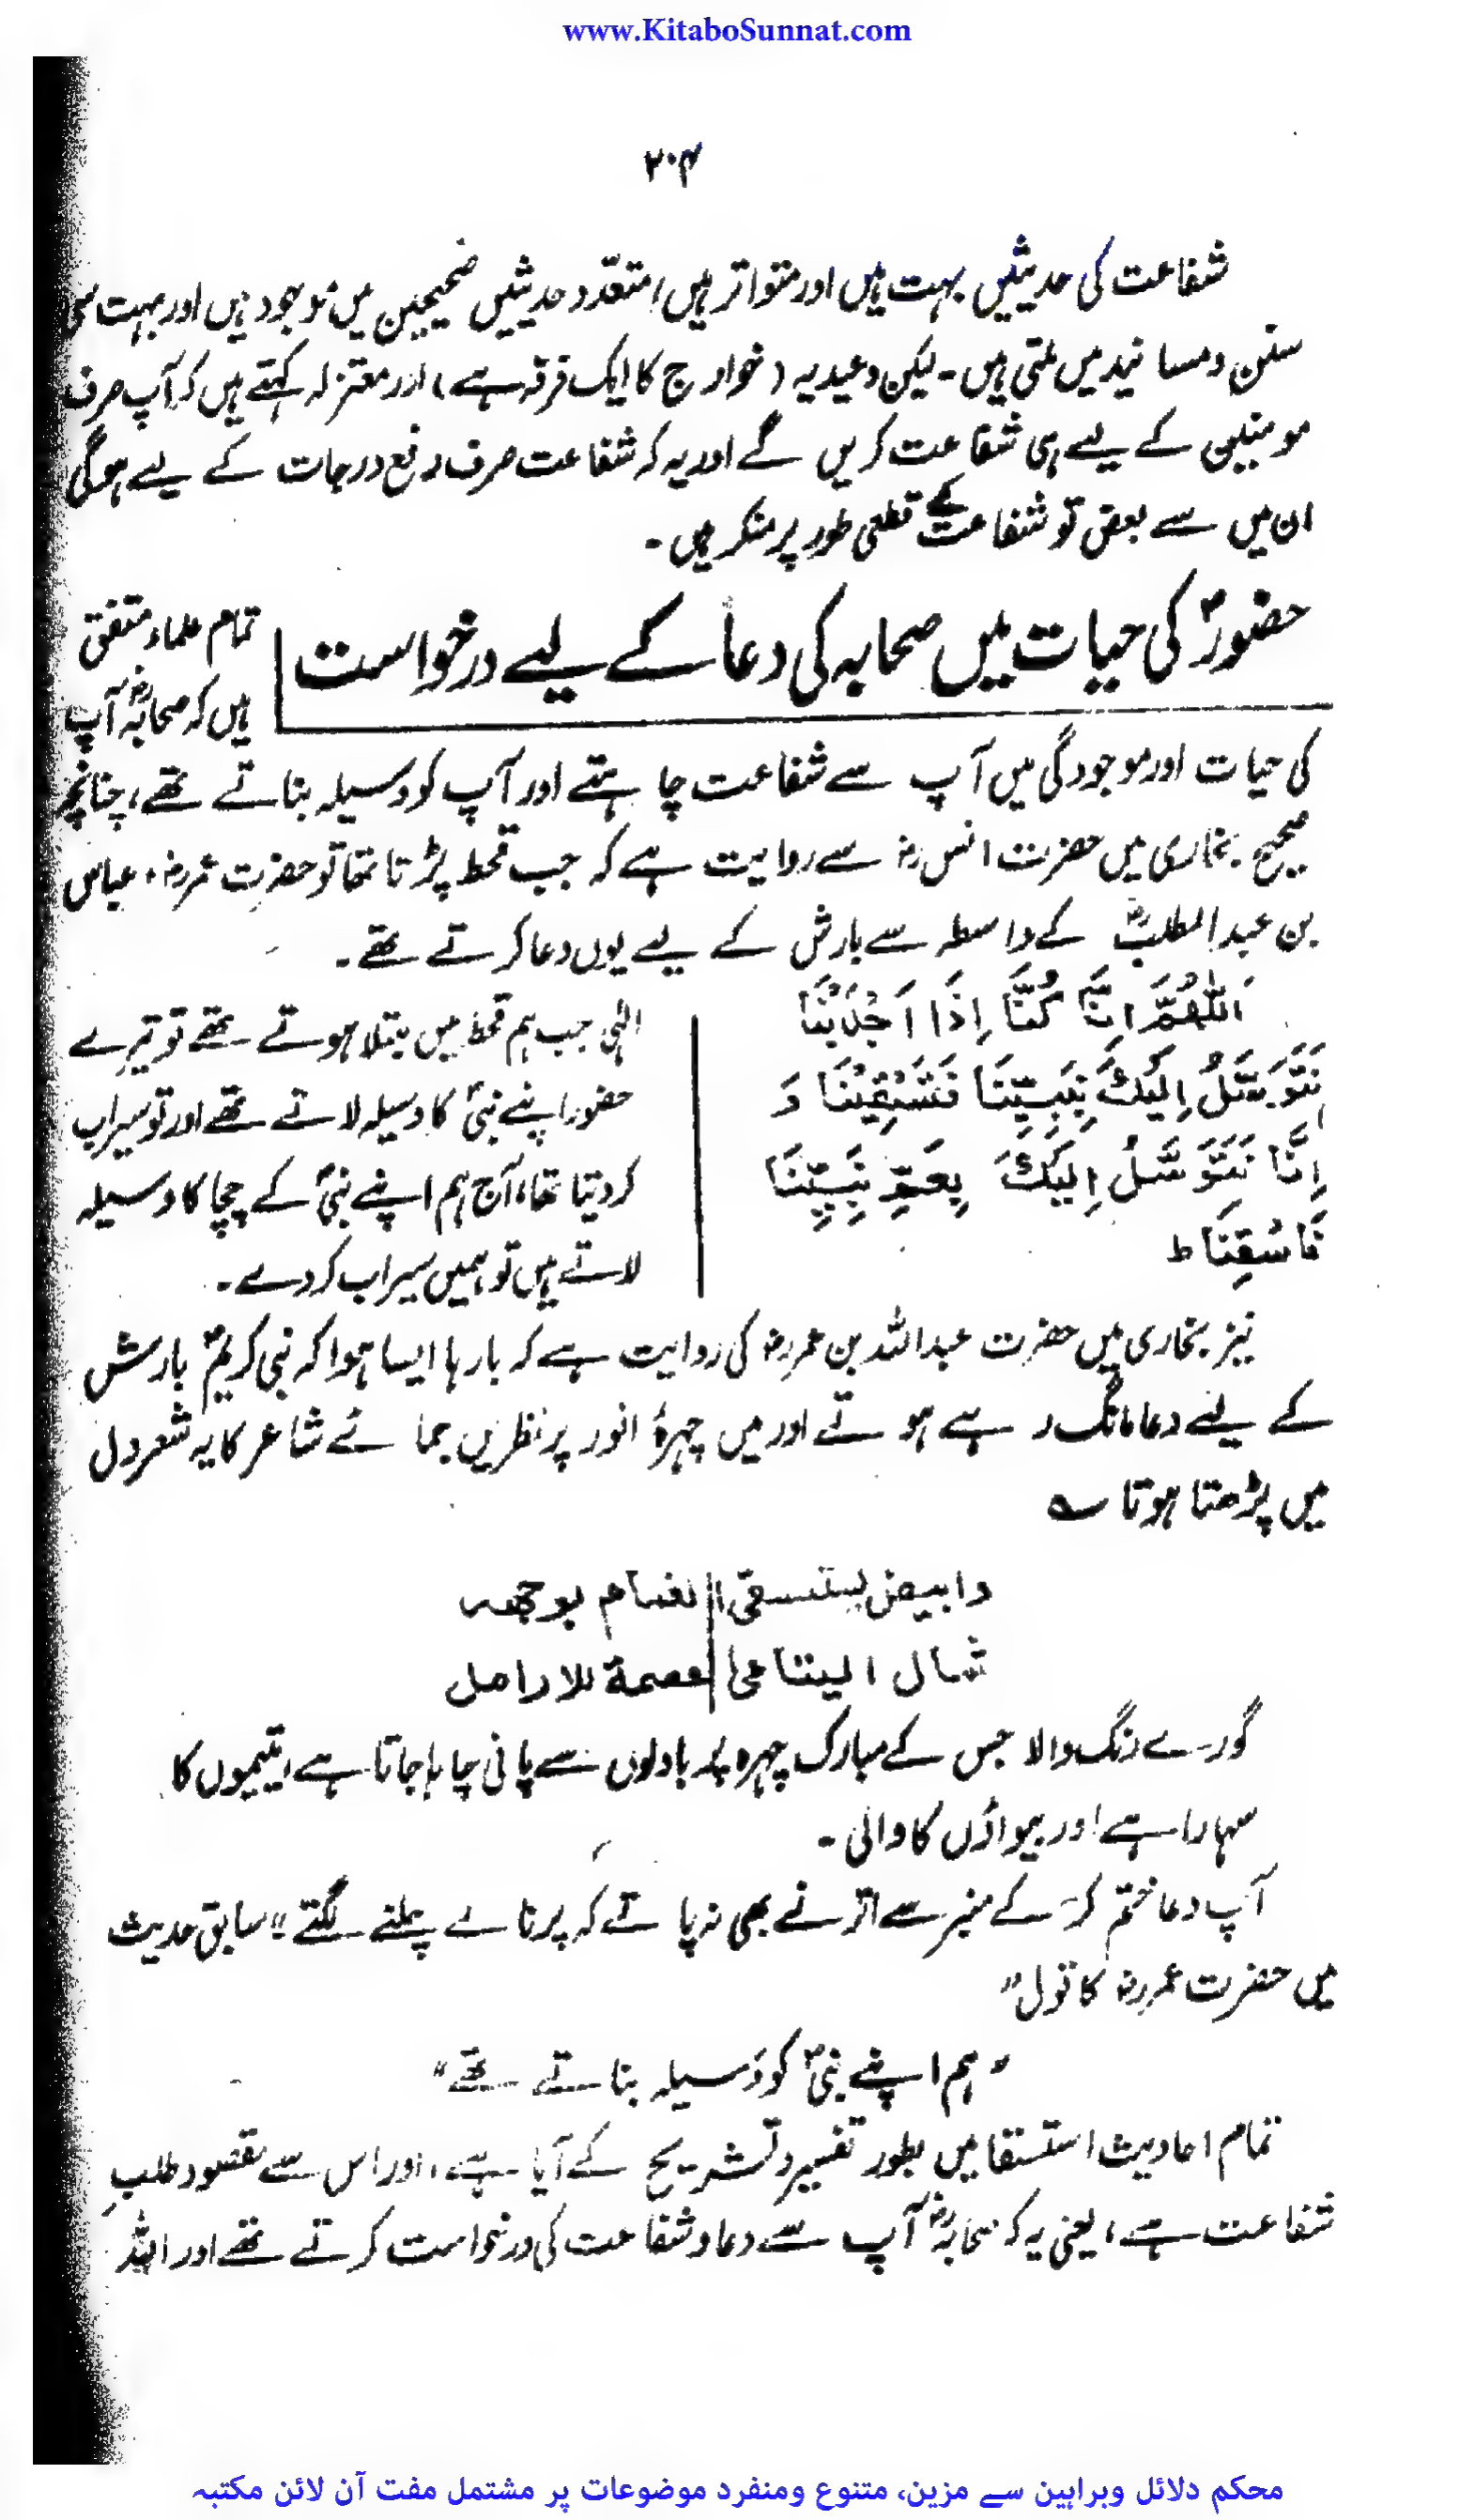 www.KitaboSunnat.com
۲۰۴
شفاعت کی حدیثیں بہت ہیں اور متواتر ہیں، متعدّد حدیثیں صحیحین میں موجود ہیں اور بہت سی
سنن و مسانید میں ملتی ہیں۔ لیکن وعیدیہ (خوارج کا ایک فرقہ ہے) اور معتزلہ کہتے ہیں کہ آپ صرف
مومنین کے لیے ہی شفاعت کریں گے اور یہ کہ شفاعت صرف رفع درجات کے لیے ہوگی
ان میں سے بعض تو شفاعت کے قطعی طور پر منکر ہیں۔
حضورؐ کی حیات میں صحابہ کی دعا کے لیے درخواست
تمام علماء متفق
ہیں کہ صحابہؓ آپ
کی حیات اور موجودگی میں آپ سے شفاعت چاہتے اور آپ کو وسیلہ بناتے تھے، چنانچہ
صحیح بخاری میں حضرت انس رضہ سے روایت ہے کہ جب قحط پڑتا تھا تو حضرت عمر رضہ، عباس
بن عبد المطلبؓ کے واسطہ سے بارش کے لیے یوں دعا کرتے تھے۔
اَللّٰھُمَّ اِنَّا کُنَّا اِذَا اَجْدَبْنَا
نَتَوَسَّلُ اِلَیْکَ بِنَبِیِّنَا فَتَسْقِیْنَا وَ
اِنَّا نَتَوَسَّلُ اِلَیْکَ بِعَمِّ نَبِیِّنَا
فَاسْقِنَا ط
الٰہی جب ہم قحط میں مبتلا ہوتے تھے تو تیرے
حضور اپنے نبیؐ کا وسیلہ لاتے تھے اور تو سیراب
کر دیتا تھا، آج ہم اپنے نبیؐ کے چچا کا وسیلہ
لاتے ہیں تو ہمیں سیراب کر دے۔
نیز بخاری میں حضرت عبد اللہ بن عمر رضہ کی روایت ہے کہ بارہا ایسا ہوا کہ نبی کریمؐ بارش
کے لیے دعا مانگ رہے ہوتے اور میں چہرۂ انور پر نظریں جمائے شاعر کا یہ شعر دل
میں پڑھتا ہوتا ؎
وابیض یستسقی الغمام بوجھہ
ثمال الیتامیٰ عصمۃ للارامل
گورے رنگ والا جس کے مبارک چہرہ پر بادلوں سے پانی چاہا جاتا ہے، یتیموں کا
سہارا ہے اور بیواؤں کا والی۔
آپ دعا ختم کر کے منبر سے اترنے بھی نہ پاتے کہ پرنالے چلنے لگتے" سابق حدیث
میں حضرت عمر رضہ کا قول"
"ہم اپنے نبیؐ کو وسیلہ بناتے تھے"
تمام احادیث استسقا میں بطور تفسیر و تشریح کے آیا ہے، اور اس سے مقصود طلبِ
شفاعت ہے، یعنی یہ کہ صحابہؓ آپ سے دعا و شفاعت کی درخواست کرتے تھے اور اللہ
محکم دلائل وبراہین سے مزین، متنوع ومنفرد موضوعات پر مشتمل مفت آن لائن مکتبہ